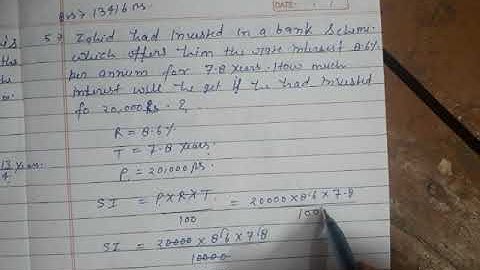 Ans → 13416 rs.
5 → Zahid had invested in a bank scheme
which offers him the rate interest 8.6%
per annum for 7.8 years. How much
interest will he get if he had invested
fo 20,000 Rs. ?
R = 8.6%
T = 7.8 years.
P = 20,000 rs.
SI = P×R×T / 100 = 20000 × 8.6 × 7.8 / 100
SI = 20000 × 8.6 × 7.8 / 10000
13/4 years.
DATE